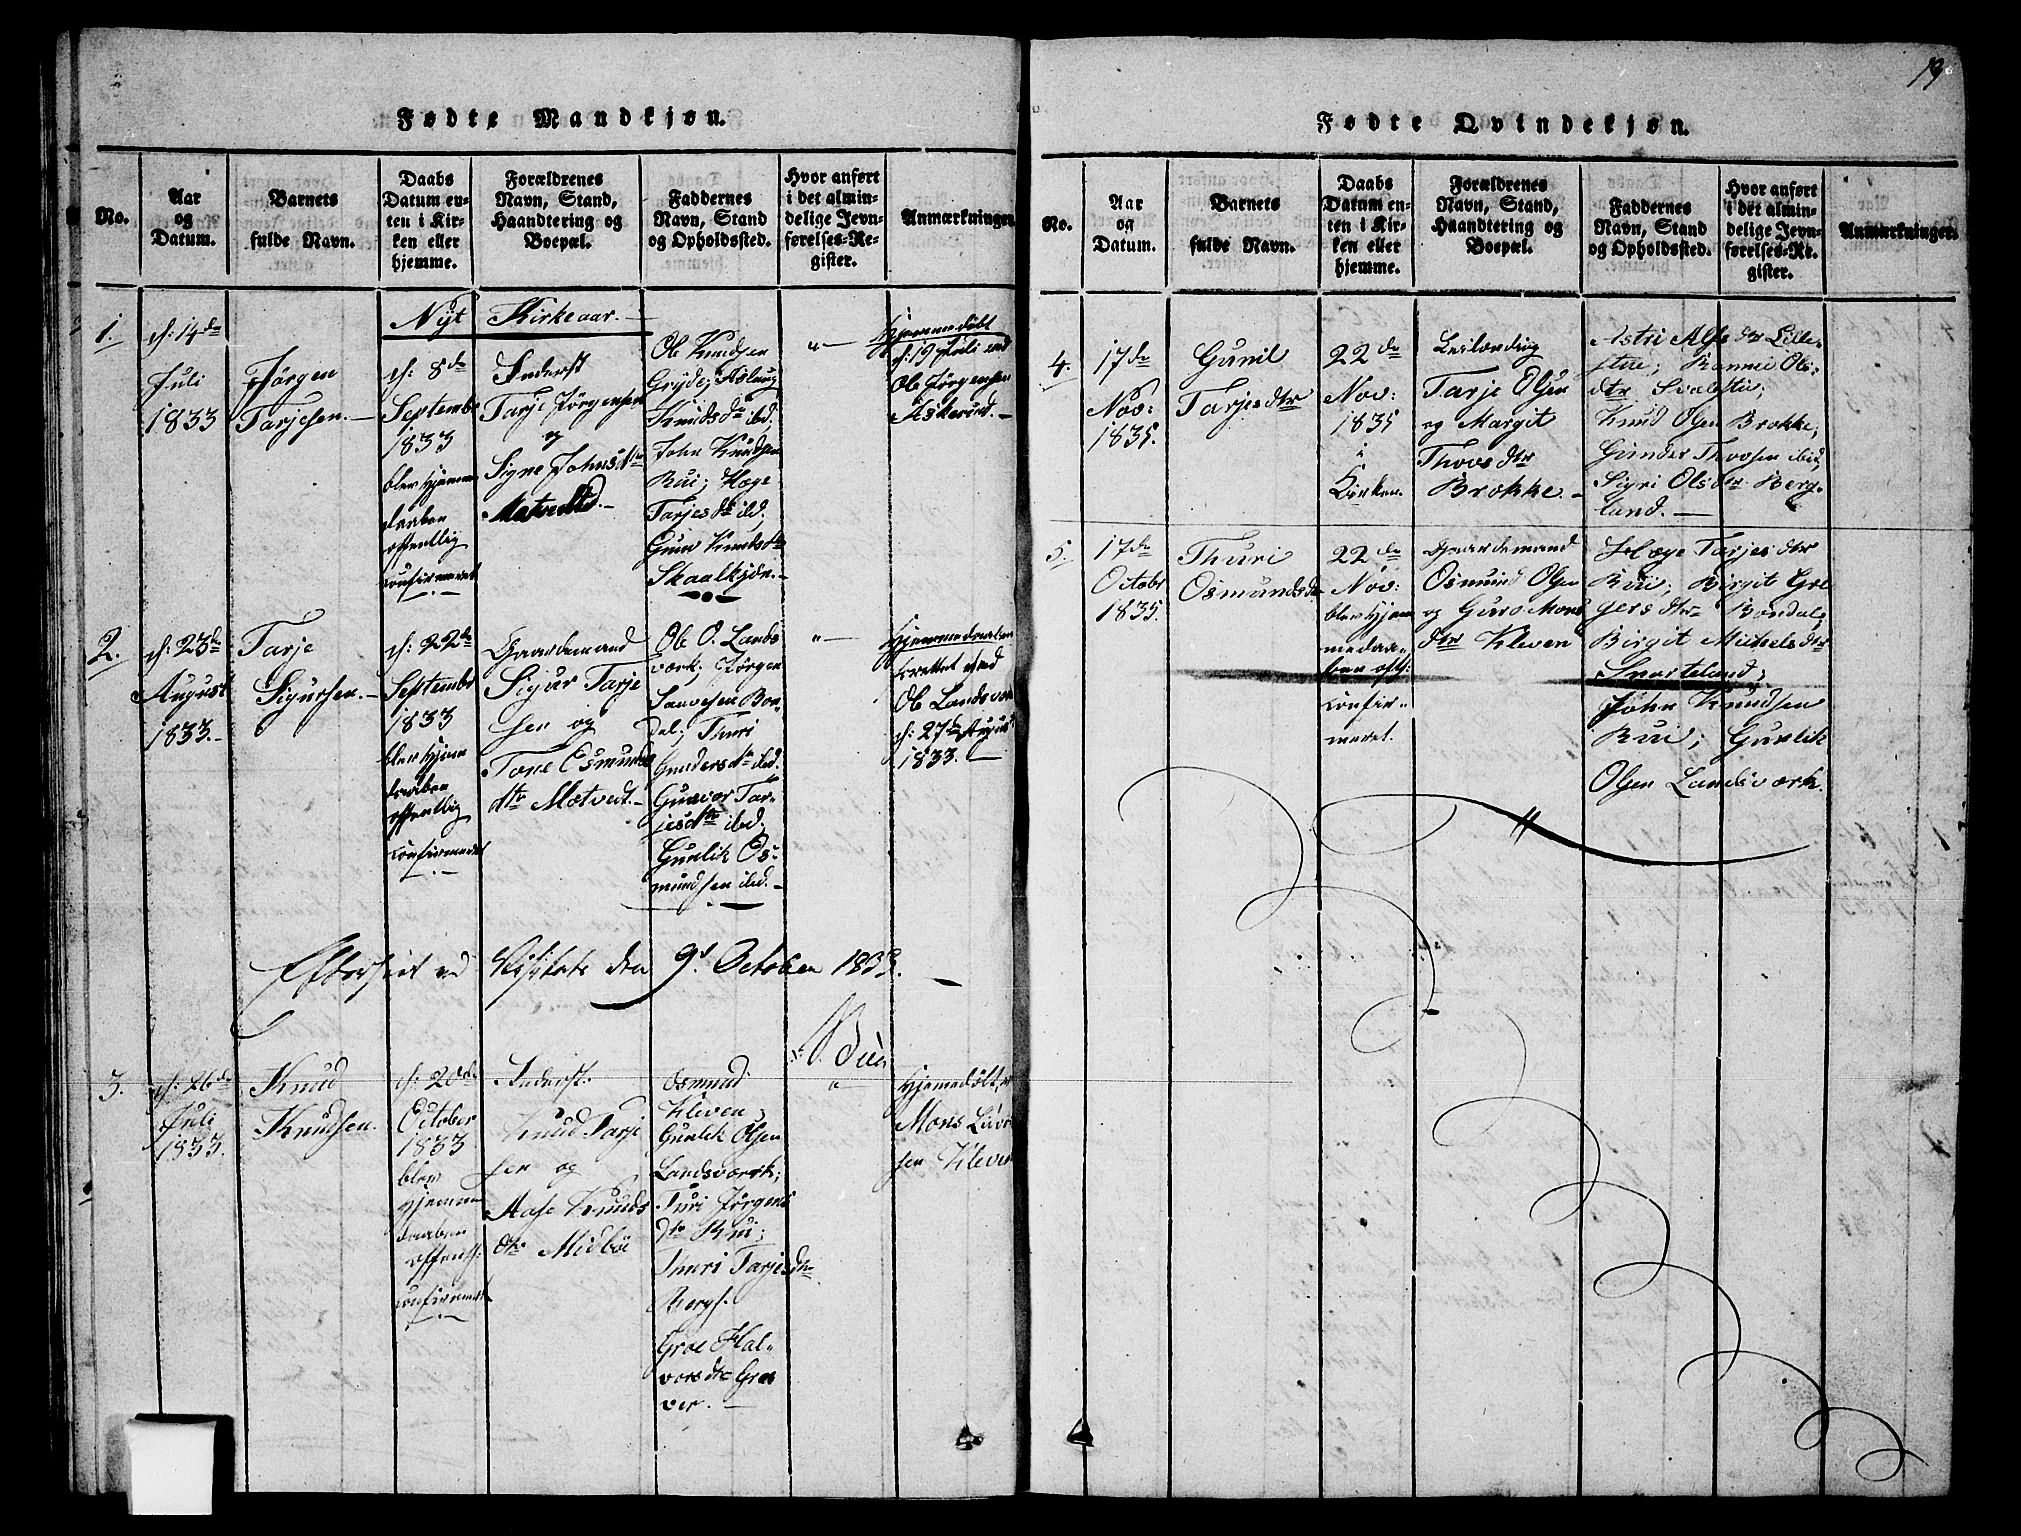 Fødte Mandkjøn.
No.
Aar
og
Datum.
Barnets
fulde Navn.
Daabs
Datum en-
ten i Kir-
ken eller
hjemme.
Forældrenes
Navn, Stand,
Haandtering og
Boepæl.
Faddernes
Navn, Stand
og Opholdssted.
Hvor anført
i det almin-
delige Jevn-
førelses-Re-
gister.
Anmærkninger.
Nyt Kirkeaar.
1.
d: 14de
Juli
1833
Jörgen
Tarjesen.
d: 8de
Septembr
1833
blev hjemme
daaben
offentlig
confirmeret
Inderst
Tarje Jörgensen
og
Signe Johnsdtr
Matvedt.
Ole Knudsen
Gryde; Aslaug
Knudsdtr ibd.
John Knudsen
Rui; Hæge
Tarjesdtr ibd;
Gunv Knudsdtr
Skaalkjdn.
"
Hjemmedöbt
d: 19 Juli ved
Ole Jörgensen
Askerud.
2.
d: 23de
August
1833.
Tarje
Sigursen.
d: 22de
Septembr
1833
blev hjemme
daaben
offentlig
confirmeret
Gaardemand
Sigur Tarje
sen og
Tone Osmunds
dtr Matvedt.
Ole O. Lands
værk; Jörgen
Sauvesen Bon-
dal; Thuri
Gundersdtr ibd.
Gunvor Tar-
jesdtr ibd;
Gunlik Os-
mundsen ibd.
"
Hjemmedaaben
forrettet ved
Ole Landsværk
d: 27de August
1833.
Efterseet ved Visitats den 9d October 1833.
3.
d: 26de
Juli
1833.
Knud
Knudsen.
d: 20de
October
1833
blev
hjemme
daaben
offentl:
confirmeret
Inderst
Knud Tarje
sen og
Aase Knuds
dtr Midböe
Osmund
Kleven;
Gunlik Olsen
Landsværk;
Turi Jörgens
dtr Rui;
Thuri Tarjesdtr
Bergs.
Groe Hal-
vorsdtr Gra
ver.
"
Hjemmedöbt, v
Mons
sen Kleven
19
Fødte Qvindekjøn.
No.
Aar
og
Datum.
Barnets
fulde Navn.
Daabs
Datum en-
ten i Kir-
ken eller
hjemme.
Forældrenes
Navn, Stand,
Haandtering og
Boepæl.
Faddernes
Navn, Stand
og Opholdssted.
Hvor anført
i det almin-
delige Jevn-
førelses-Re-
gister.
Anmærkninger.
4.
17de
Nov:
1835.
Gunil
Tarjesdtr
22de
Nov:
1835
i
Kirken.
Leilænding
Tarje Olsen
og Margit
Thovsdtr
Brokke.
Astri Alfsdtr Lille-
stue; Ronnei Ols-
dtr Svalestu;
Knud Olsen Brokke;
Gunder Thovsen ibid;
Sigri Olsdtr Berg-
land.
5.
17de
Octobr
1835.
Thuri
Osmundsdtr
22de
Nov:
blev hjem
medaa-
ben offt:
confir-
meret.
Gaardemand
Osmund Olsen
og Guro Mons
dtr Kleven
Hæge Tarjesdtr
Rui; Birgit Gre
gersdtr Bondal;
Birgit Michelsdtr
Svarteland;
John Knudsen
Rui; Gunlik
Olsen Landsværk.